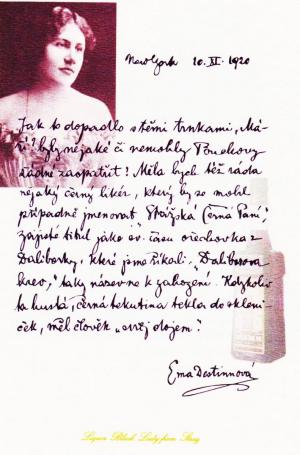 New York 10. XI. 1920
Jak to dopadlo s těmi trnkami, "Má-
ři"? byly nějaké či nemohly Roudkovy
žádné zaopatřit! Měla bych též ráda
nějaký černý likér, který by se mohl
případně jmenovat "Strážská Černá Paní",
zajisté titul jako sv. času ořechovka z
Daliborky, které jsme říkali "Daliborova
krev," taky název ne k zahození. Kdykoliv
ta hustá, černá tekutina tekla do skleni-
ček, měl člověk dojem."
Ema Destinnová
Liquor Black Lady from Straz